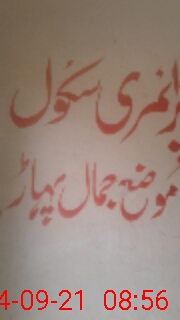 پرائمری سکول
موضع جمال پہاڑ
4-09-21 08:56